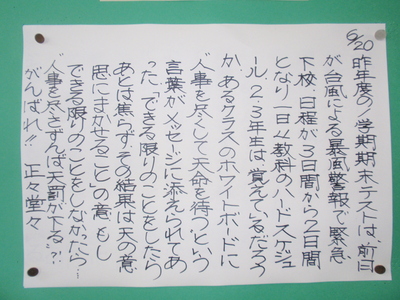 6/20
昨年度の1学期期末テストは、前日
が台風による暴風警報で緊急
下校、日程が3日間から2日間
となり一日4教科のハードスケジュ
ール、2・3年生は覚えているだろう
か。あるクラスのホワイトボードに
"人事を尽くして天命を待つ"という
言葉がメッセージに添えられてあ
った。「できる限りのことをしたら
あとは焦らず、その結果は天の意
思にまかせること」の意。もし
できる限りのことをしなかったら…
"人事を尽さずんば天罰が下る"…?!
がんばれ!! 正々堂々